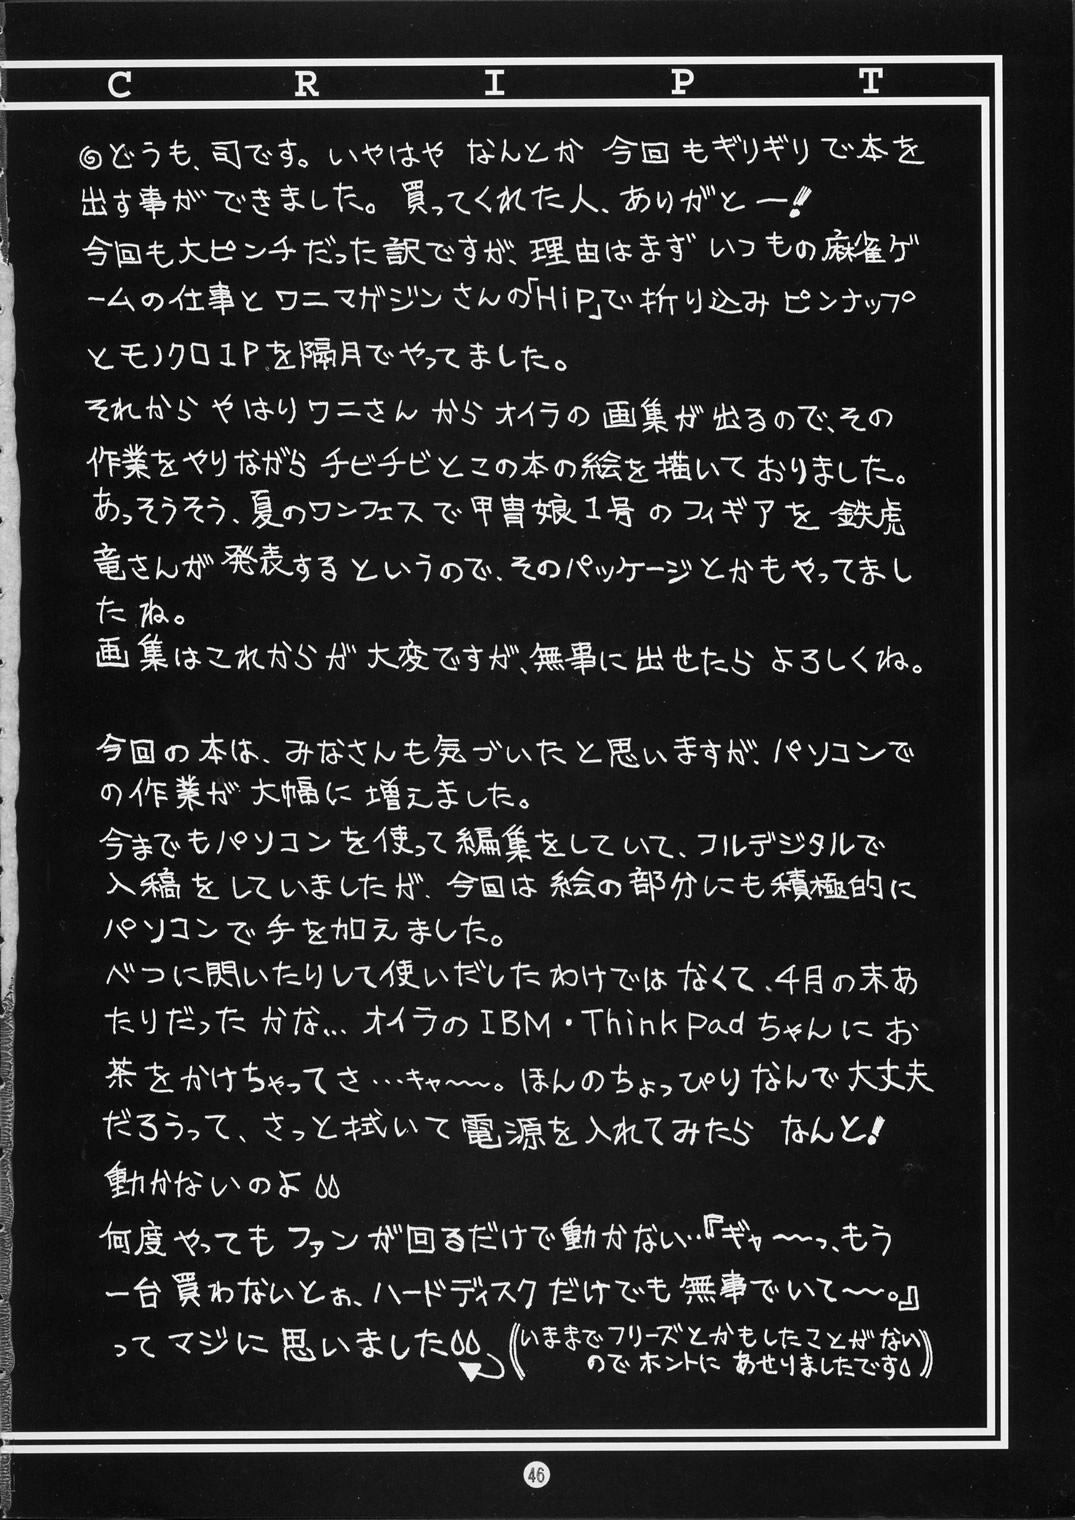 C R I P T
◎どうも、司です。いやはや なんとか 今回もギリギリで本を
出す事ができました。買ってくれた人、ありがとー!!
今回も大ピンチだった訳ですが、理由はまず いつもの麻雀ゲ
ームの仕事と ワニマガジンさんの「HiP」で折り込みピンナップ
とモノクロ1P.を隔月でやってました。
それから やはりワニさん からオイラの画集が出るので、その
作業をやりながら チビチビとこの本の絵を描いておりました。
あっそうそう、夏のワンフェスで甲冑娘1号のフィギアを鉄虎
竜さんが発表するというので、そのパッケージとかもやってまし
たね。
画集はこれからが大変ですが、無事に出せたら よろしくね。
今回の本は、みなさんも気づいたと思いますが、パソコンで
の作業が大幅に増えました。
今までもパソコンを使って編集をしていて、フルデジタルで
入稿をしていましたが、今回は絵の部分にも積極的に
パソコンで手を加えました。
べつに閃いたりして使いだしたわけではなくて、4月の末あ
たりだったかな... オイラのIBM・ThinkPadちゃんにお
茶をかけちゃってさ…キャ〜〜。ほんのちょっぴりなんで大丈夫
だろうって、さっと拭いて電源を入れてみたら なんと!
動かないのよ
何度やってもファンが回るだけで動かない…『ギャ〜〜っ、もう
一台買わないとぉ、ハードディスクだけでも無事でいて〜〜。』
ってマジに思いました
((いままでフリーズとかもしたことがない
のでホントに あせりましたです))
46